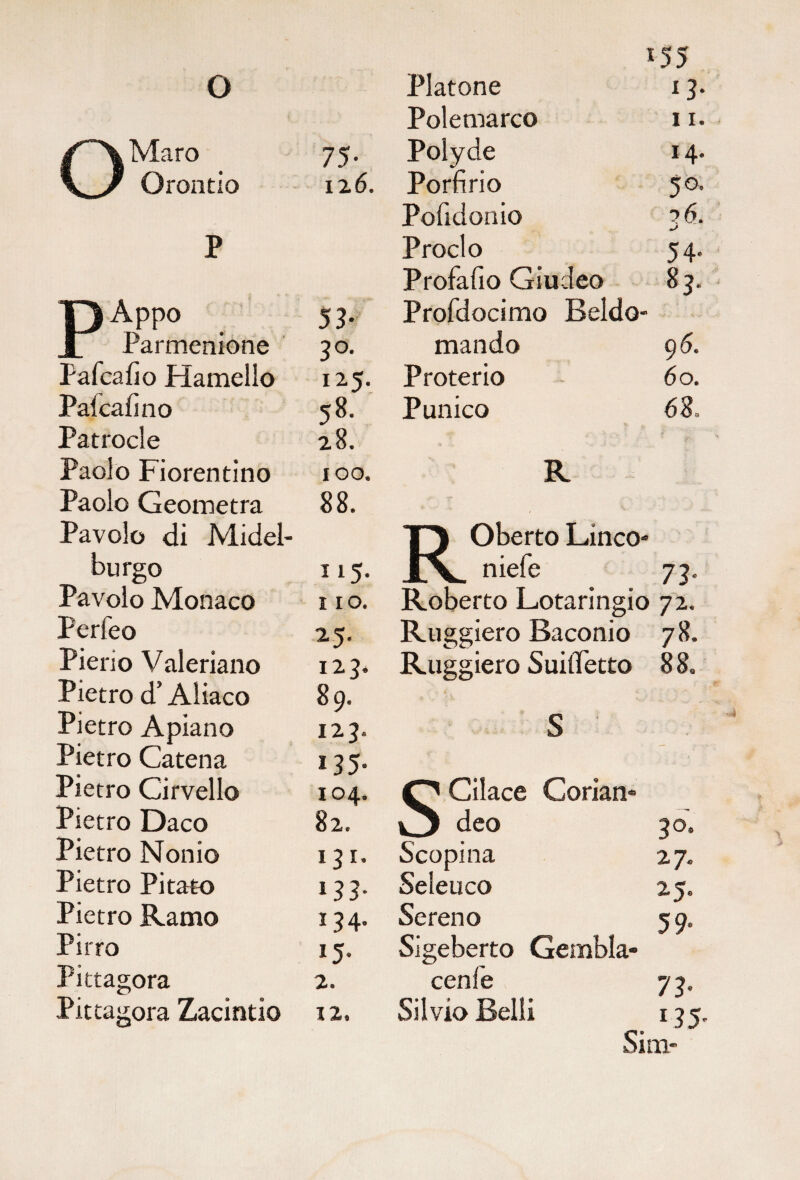 155
O
OMaro 75.
Orontio 126.
P
PAppo 53.
Parmenione 30.
Paſcaſio Hamello 125.
Paſcaſino 58.
Patrocle 28.
Paolo Fiorentino 100.
Paolo Geometra 88.
Pavolo di Midel-
burgo 115.
Pavolo Monaco 110.
Perſeo 25.
Pierio Valeriano 123.
Pietro d' Aliaco 89.
Pietro Apiano 123.
Pietro Catena 135.
Pietro Cirvello 104.
Pietro Daco 82.
Pietro Nonio 131.
Pietro Pitato 133.
Pietro Ramo 134.
Pirro 15.
Pittagora 2.
Pittagora Zacintio 12.
Platone 13.
Polemarco 11.
Polyde 14.
Porfirio 50.
Poſidonio 36.
Proclo 54.
Profaſio Giudeo 83.
Proſdocimo Beldo-
mando 96.
Proterio 60.
Punico 68.
R
ROberto Linco-
nieſe 73.
Roberto Lotaringio 72.
Ruggiero Baconio 78.
Ruggiero Suiſſetto 88.
S
SCilace Corian-
deo 30.
Scopina 27.
Seleuco 25.
Sereno 59.
Sigeberto Gembla-
cenſe 73.
Silvio Belli 135.
Sim-